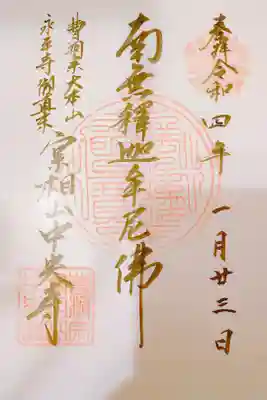 奉拝令和四年一月廿三日
南無釋迦牟尼佛
曹洞宗大本山
永平寺御直末
實相山中央寺